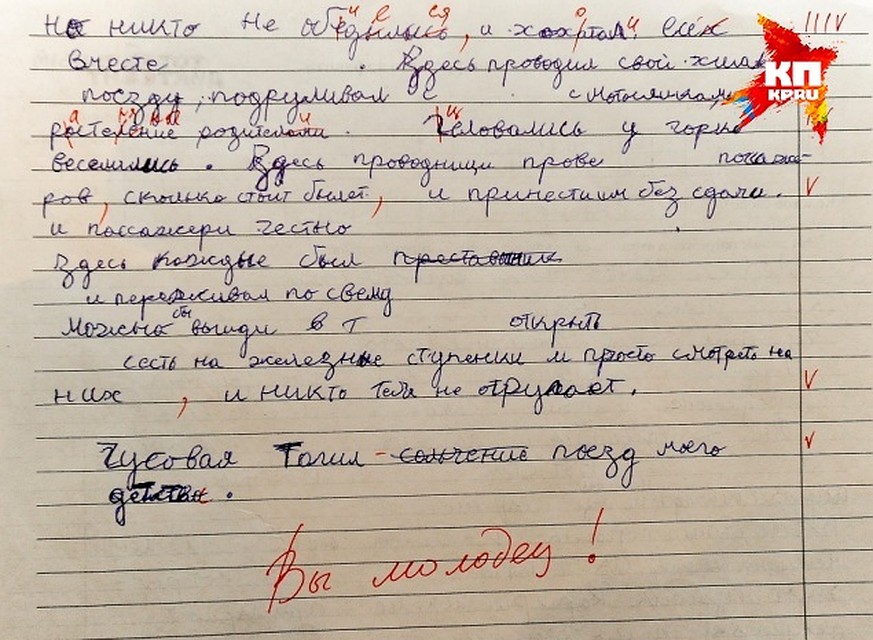 Но никто не обиделись, и хохртал всех IIIV
вместе . Здесь проводил свой
поезду, подруживал с с мотоциклами
родителами . Целовались у горы
веселились . Здесь проводници прове пасаже-
ров, сколько стоит былет, и принести им без сдачи. V
и пассажери честно
Здесь каждые был
и переживал по свему
можно бы выиди в т открыть
сесть на железные ступении и просто смотреть на
них , и никто тебя не отругает. V
Чусовая Тагил - поезд моего V
детства.
Вы молодец!
КП
KP.RU